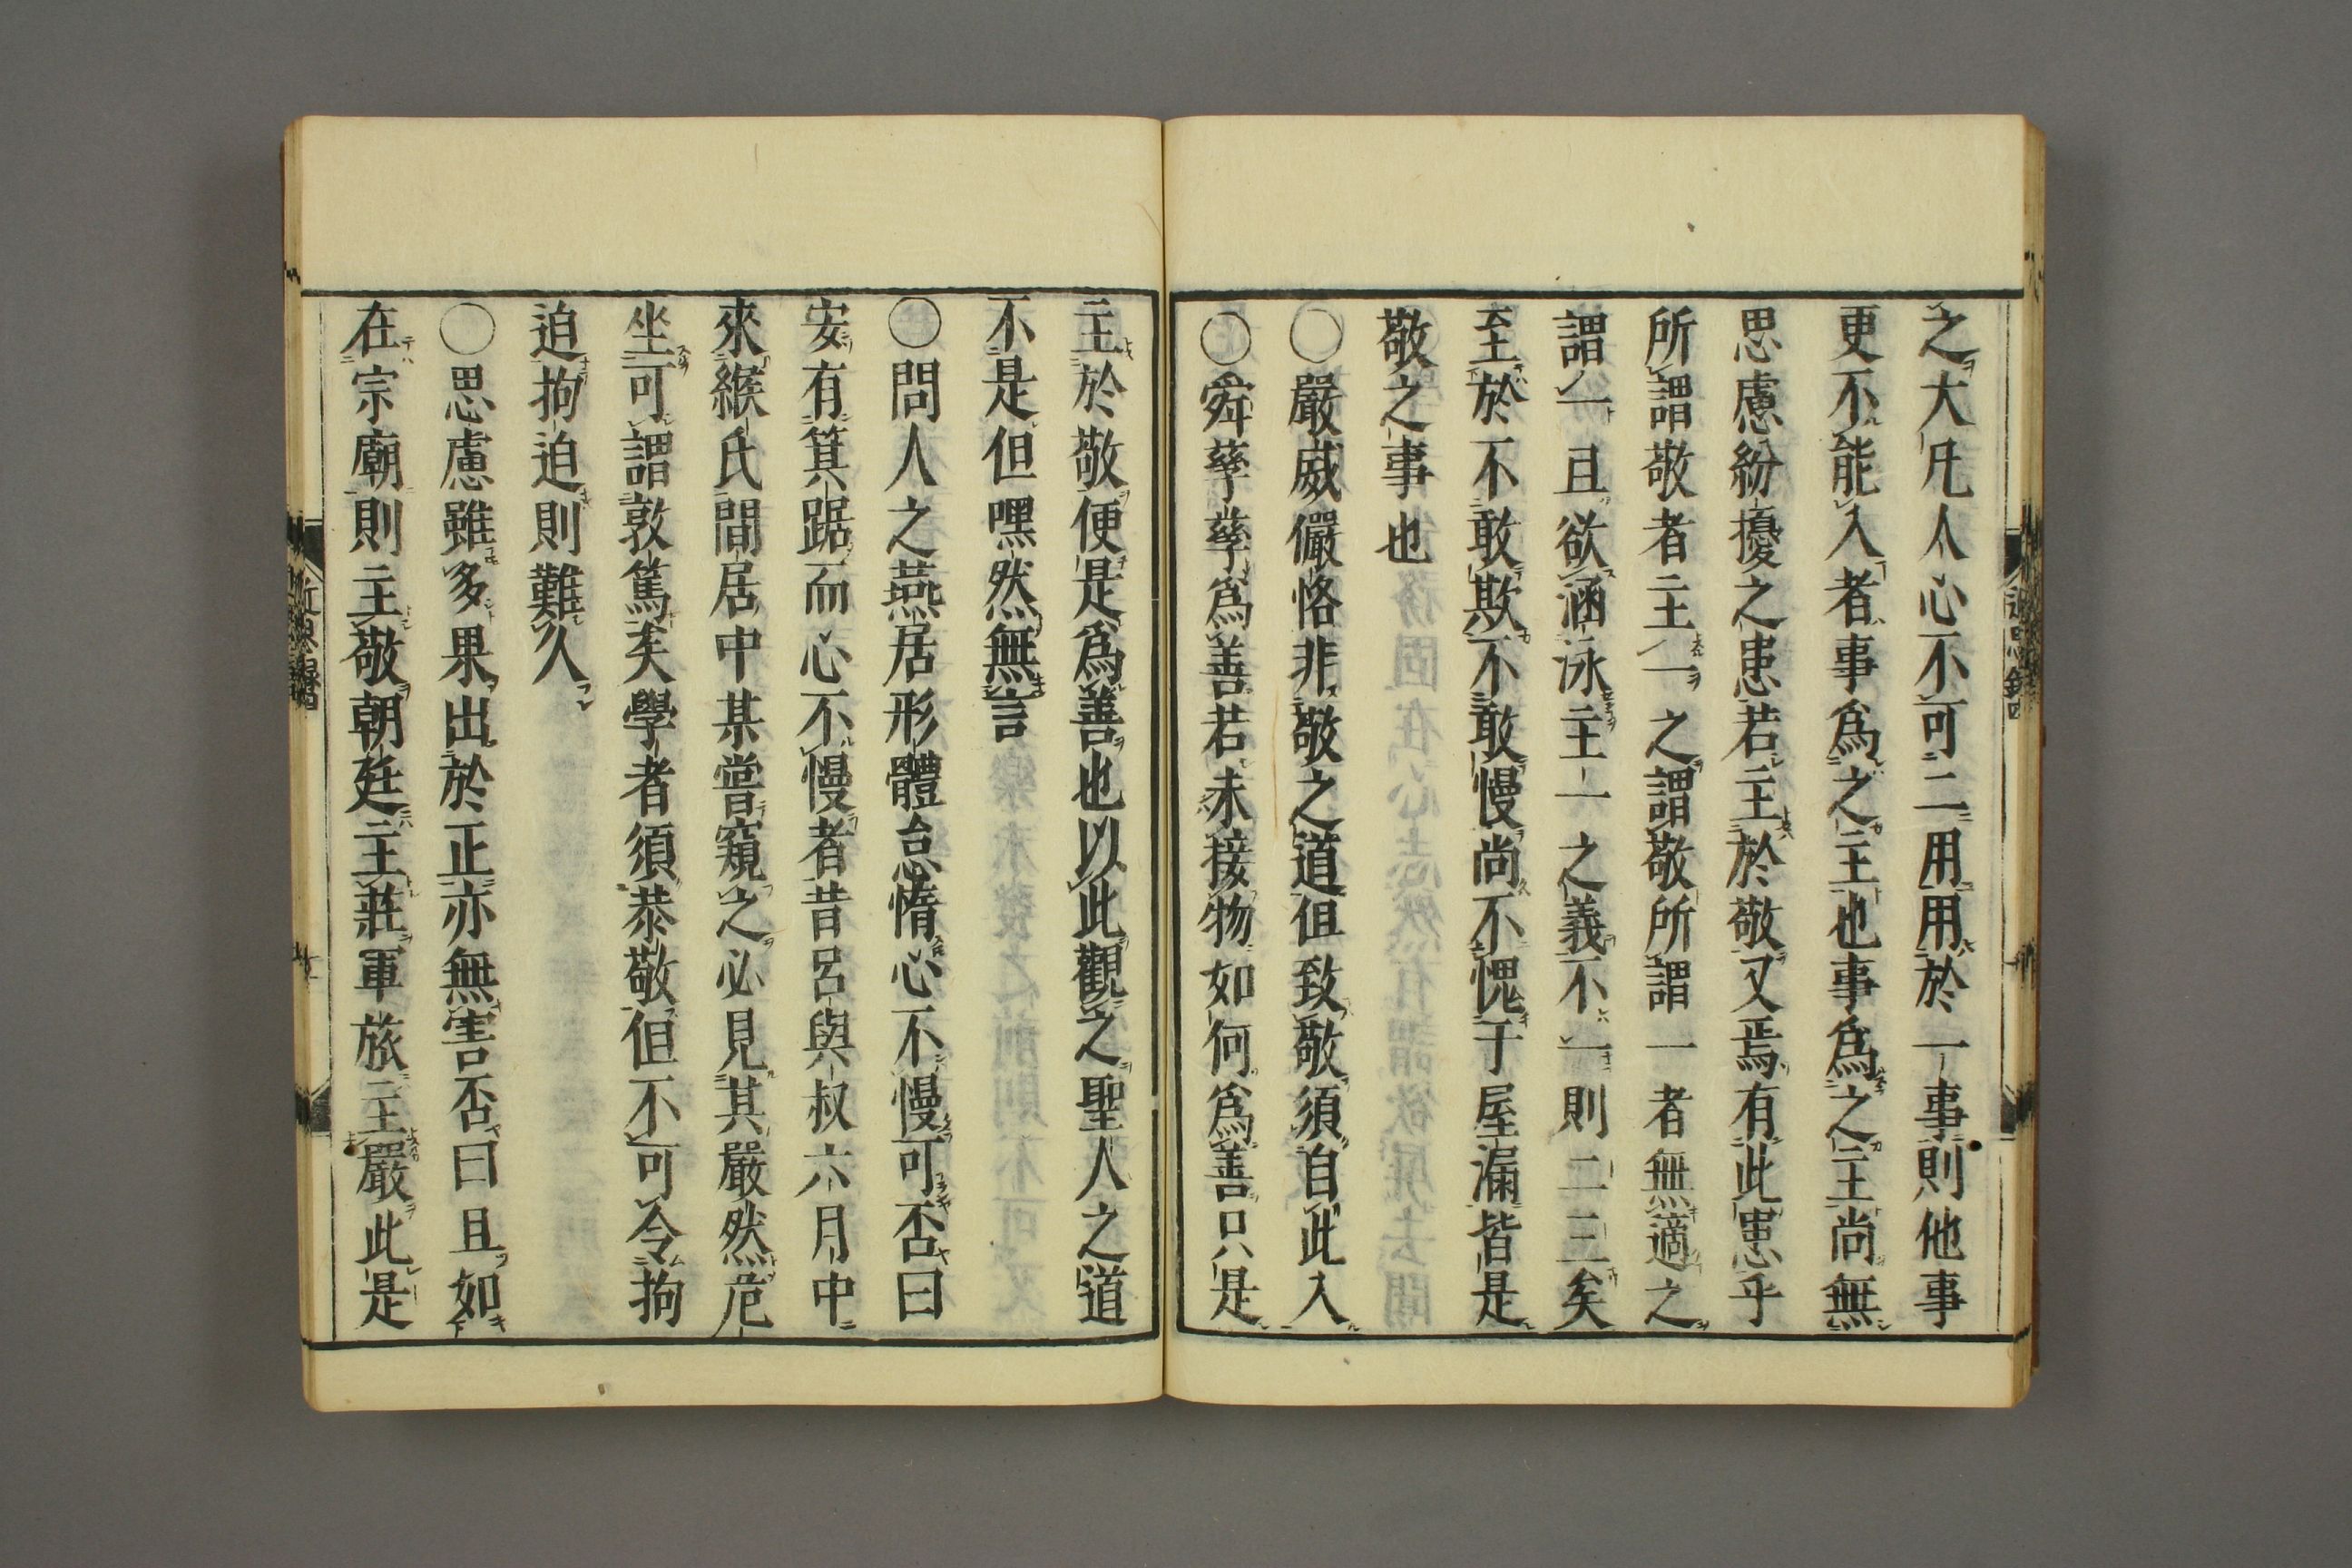 之大凡人心不可二用用於一事則他事
更不能入者事爲之主也事爲之主尚無
思慮紛擾之患若主於敬又焉有此患乎
所謂敬者主一之謂敬所謂一者無適之
謂一且欲涵泳主一之義不一則二三矣
至於不敢欺不敢慢尚不愧于屋漏皆是
敬之事也
○嚴威儼恪非敬之道但致敬須自此入
○舜孳孳爲善若未接物如何爲善只是
主於敬便是爲善也以此觀之聖人之道
不是但嘿然無言
○問人之燕居形體怠惰心不慢可否曰
安有箕踞而心不慢者昔呂與叔六月中
來緱氏間居中某嘗窺之必見其嚴然危
坐可謂敦篤矣學者須恭敬但不可令拘
迫拘迫則難久
○思慮雖多果出於正亦無害否曰且如
在宗廟則主敬朝廷主莊軍旅主嚴此是